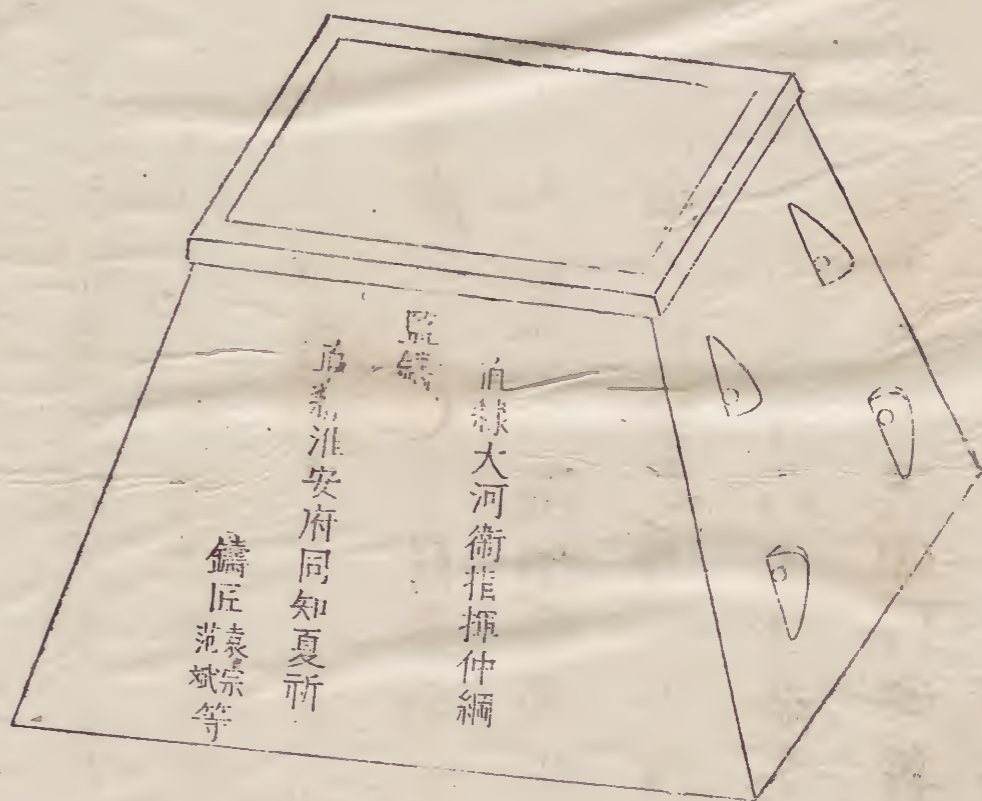 監鑄
直隸大河衛指揮仲綱
直隸淮安府同知夏祈
鑄匠袁宗范斌等